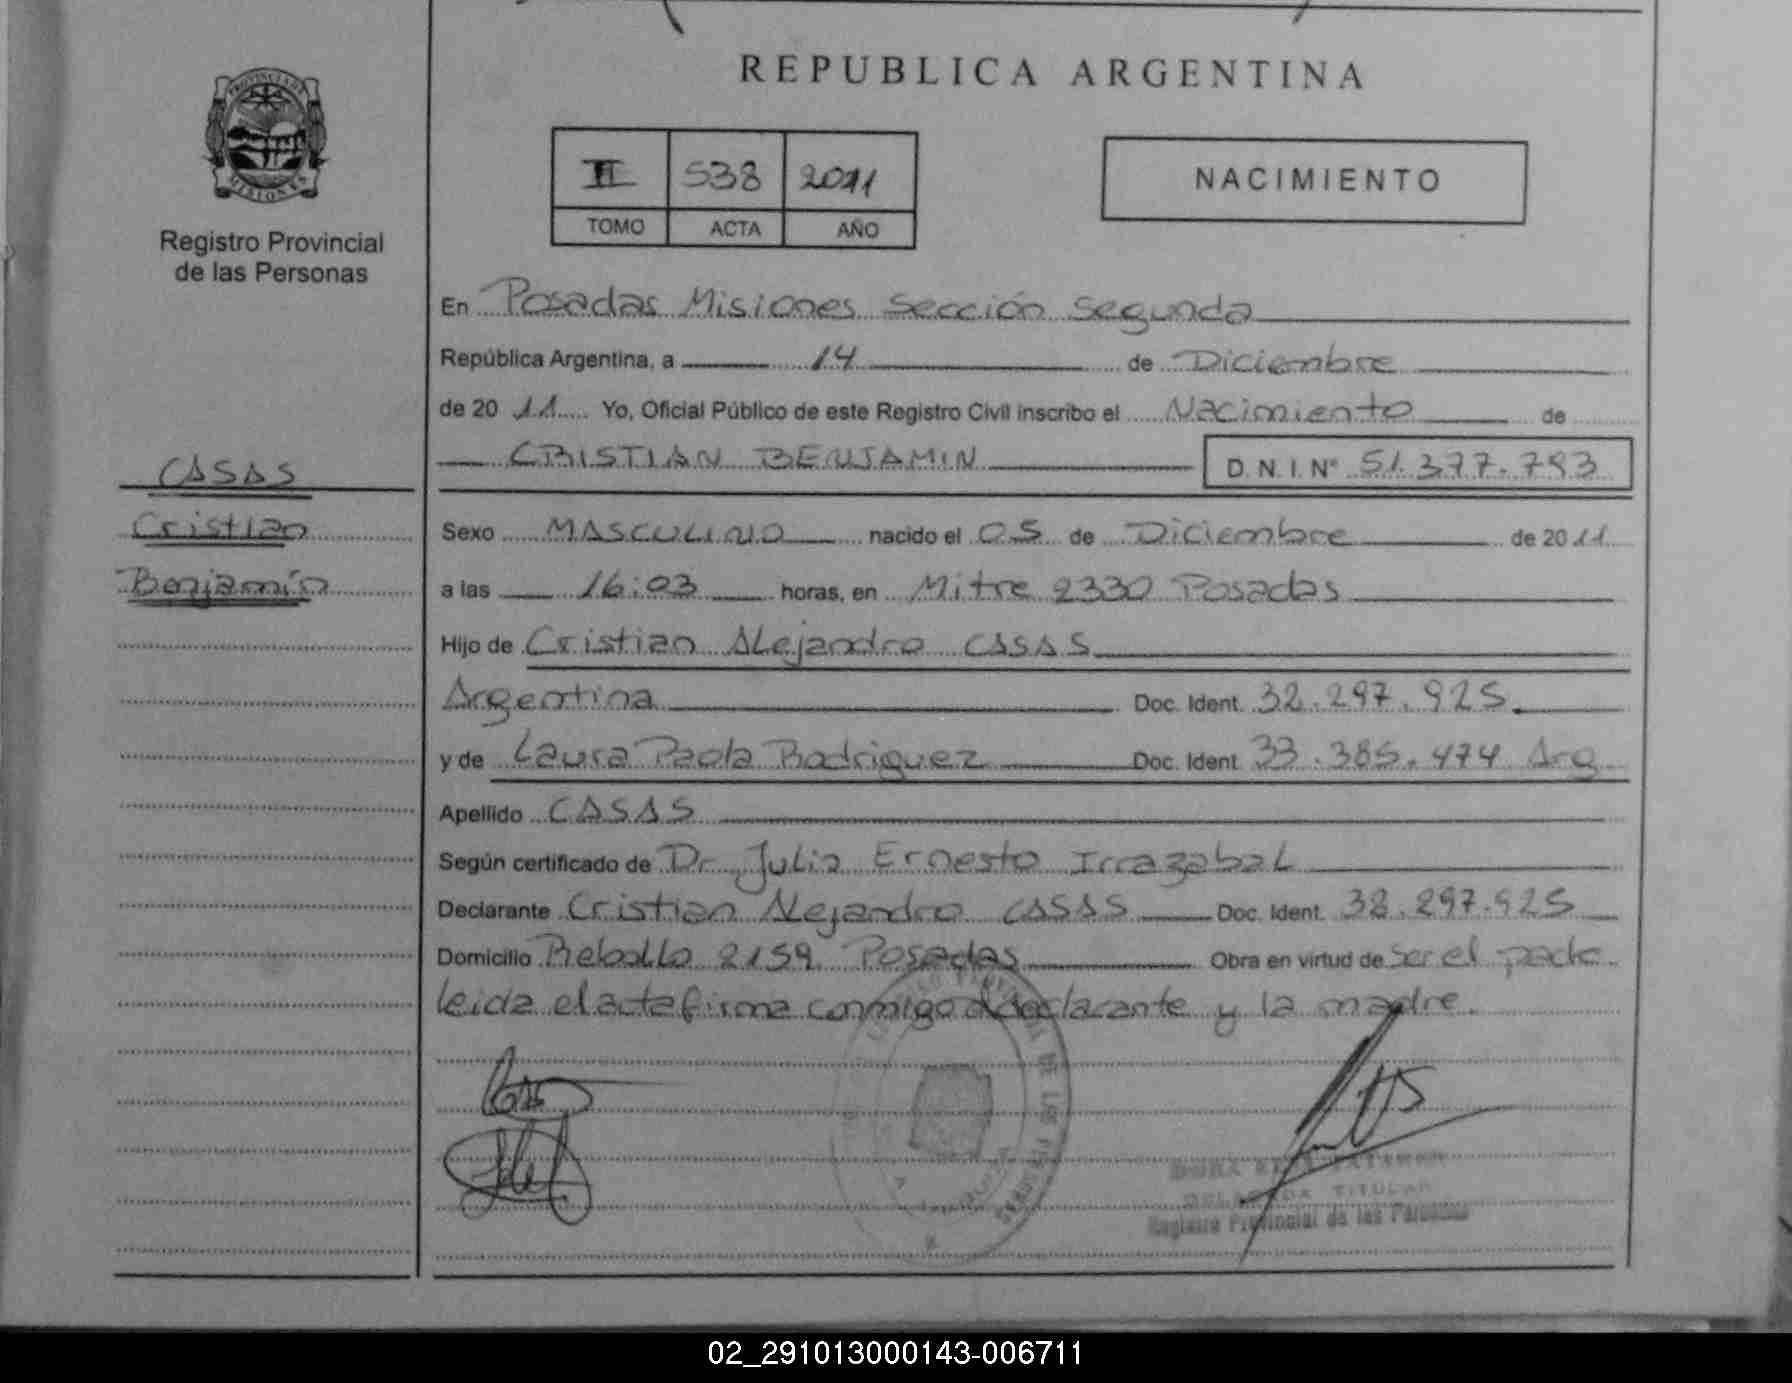 REPUBLICA ARGENTINA
PROVINCIA DE
MISIONES
Registro Provincial
de las Personas
II 538 2011
TOMO ACTA AÑO
NACIMIENTO
CASAS
Cristian
Benjamín
En Posadas Misiones Sección Segunda
República Argentina, a 14 de Diciembre
de 20 11 Yo, Oficial Público de este Registro Civil inscribo el Nacimiento de
CRISTIAN BENJAMIN D.N.I. N° 51.377.793
Sexo MASCULINO nacido el 05 de Diciembre de 20 11
a las 16:03 horas, en Mitre 2330 Posadas
Hijo de Cristian Alejandro CASAS
Argentina Doc. Ident. 32.297.925
y de Laura Paola Rodriguez Doc. Ident. 33.385.474 Arg
Apellido CASAS
Según certificado de Dr. Julio Ernesto Irrazabal
Declarante Cristian Alejandro CASAS Doc. Ident. 32.297.925
Domicilio Rebollo 2159 Posadas Obra en virtud de ser el padre
leida el acta firma conmigo el declarante y la madre.
TITULAR
Registro Provincial de las Personas
02_291013000143-006711